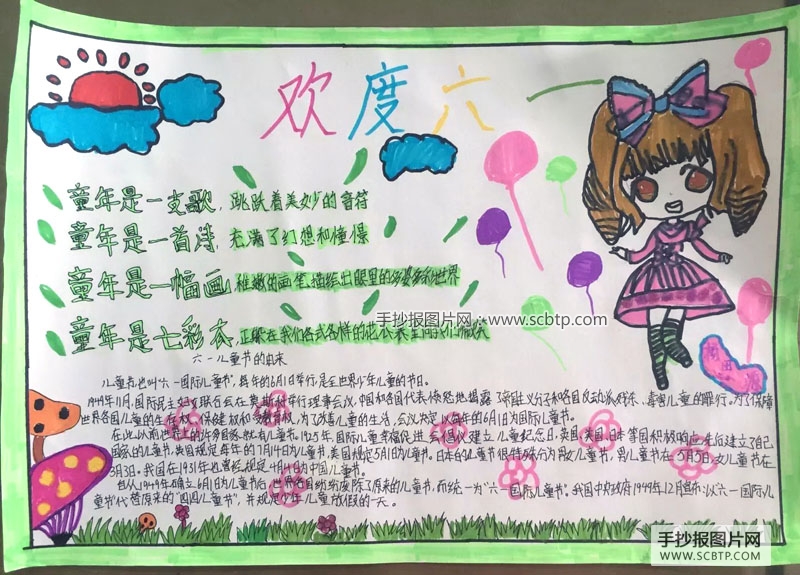 欢度六一
童年是一支歌，跳跃着美妙的音符
童年是一首诗，充满了幻想和憧憬
童年是一幅画，稚嫩的画笔描绘出眼里的多姿多彩世界
童年是七彩衣，正飘在我们各式各样的花衣裳里向我们微笑
手抄报图片网：www.scbtp.com
六一儿童节的由来
儿童节也叫“六一国际儿童节”，每年的6月1日举行，是全世界少年儿童的节日。
1949年11月，国际民主妇女联合会在莫斯科举行理事会议，中国和各国代表愤怒地揭露了帝国主义分子和各国反动派残杀、毒害儿童的罪行。为了保障
世界各国儿童的生存权、保健权和受教育权，为了改善儿童的生活，会议决定以每年的6月1日为国际儿童节。
在此以前世界上的许多国家就有儿童节。1925年，国际儿童幸福促进会倡议建立儿童纪念日，英国、美国、日本等国积极响应先后建立了自己
国家的儿童节。英国规定每年的7月14日为儿童节，美国规定5月1日为儿童节。日本的儿童节很特殊分为男女儿童节，男儿童节在5月5日，女儿童节在
3月3日。我国在1931年也曾经规定4月4日为中国儿童节。
但从1949年确立6月1日为儿童节后，世界各国纷纷废除了原来的儿童节，而统一为“六一国际儿童节”。我国中央政府1949年12月宣布：以“六一国际儿
童节”代替原来的“四四儿童节”，并规定少年儿童放假的一天。
手抄报图片网
WWW.SCBTP.COM